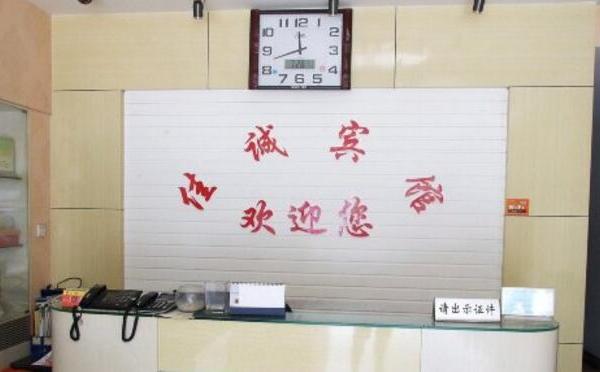 11 12 1
10 2
9 3
8 4
7 6 5
佳诚宾馆
欢迎您
请出示证件